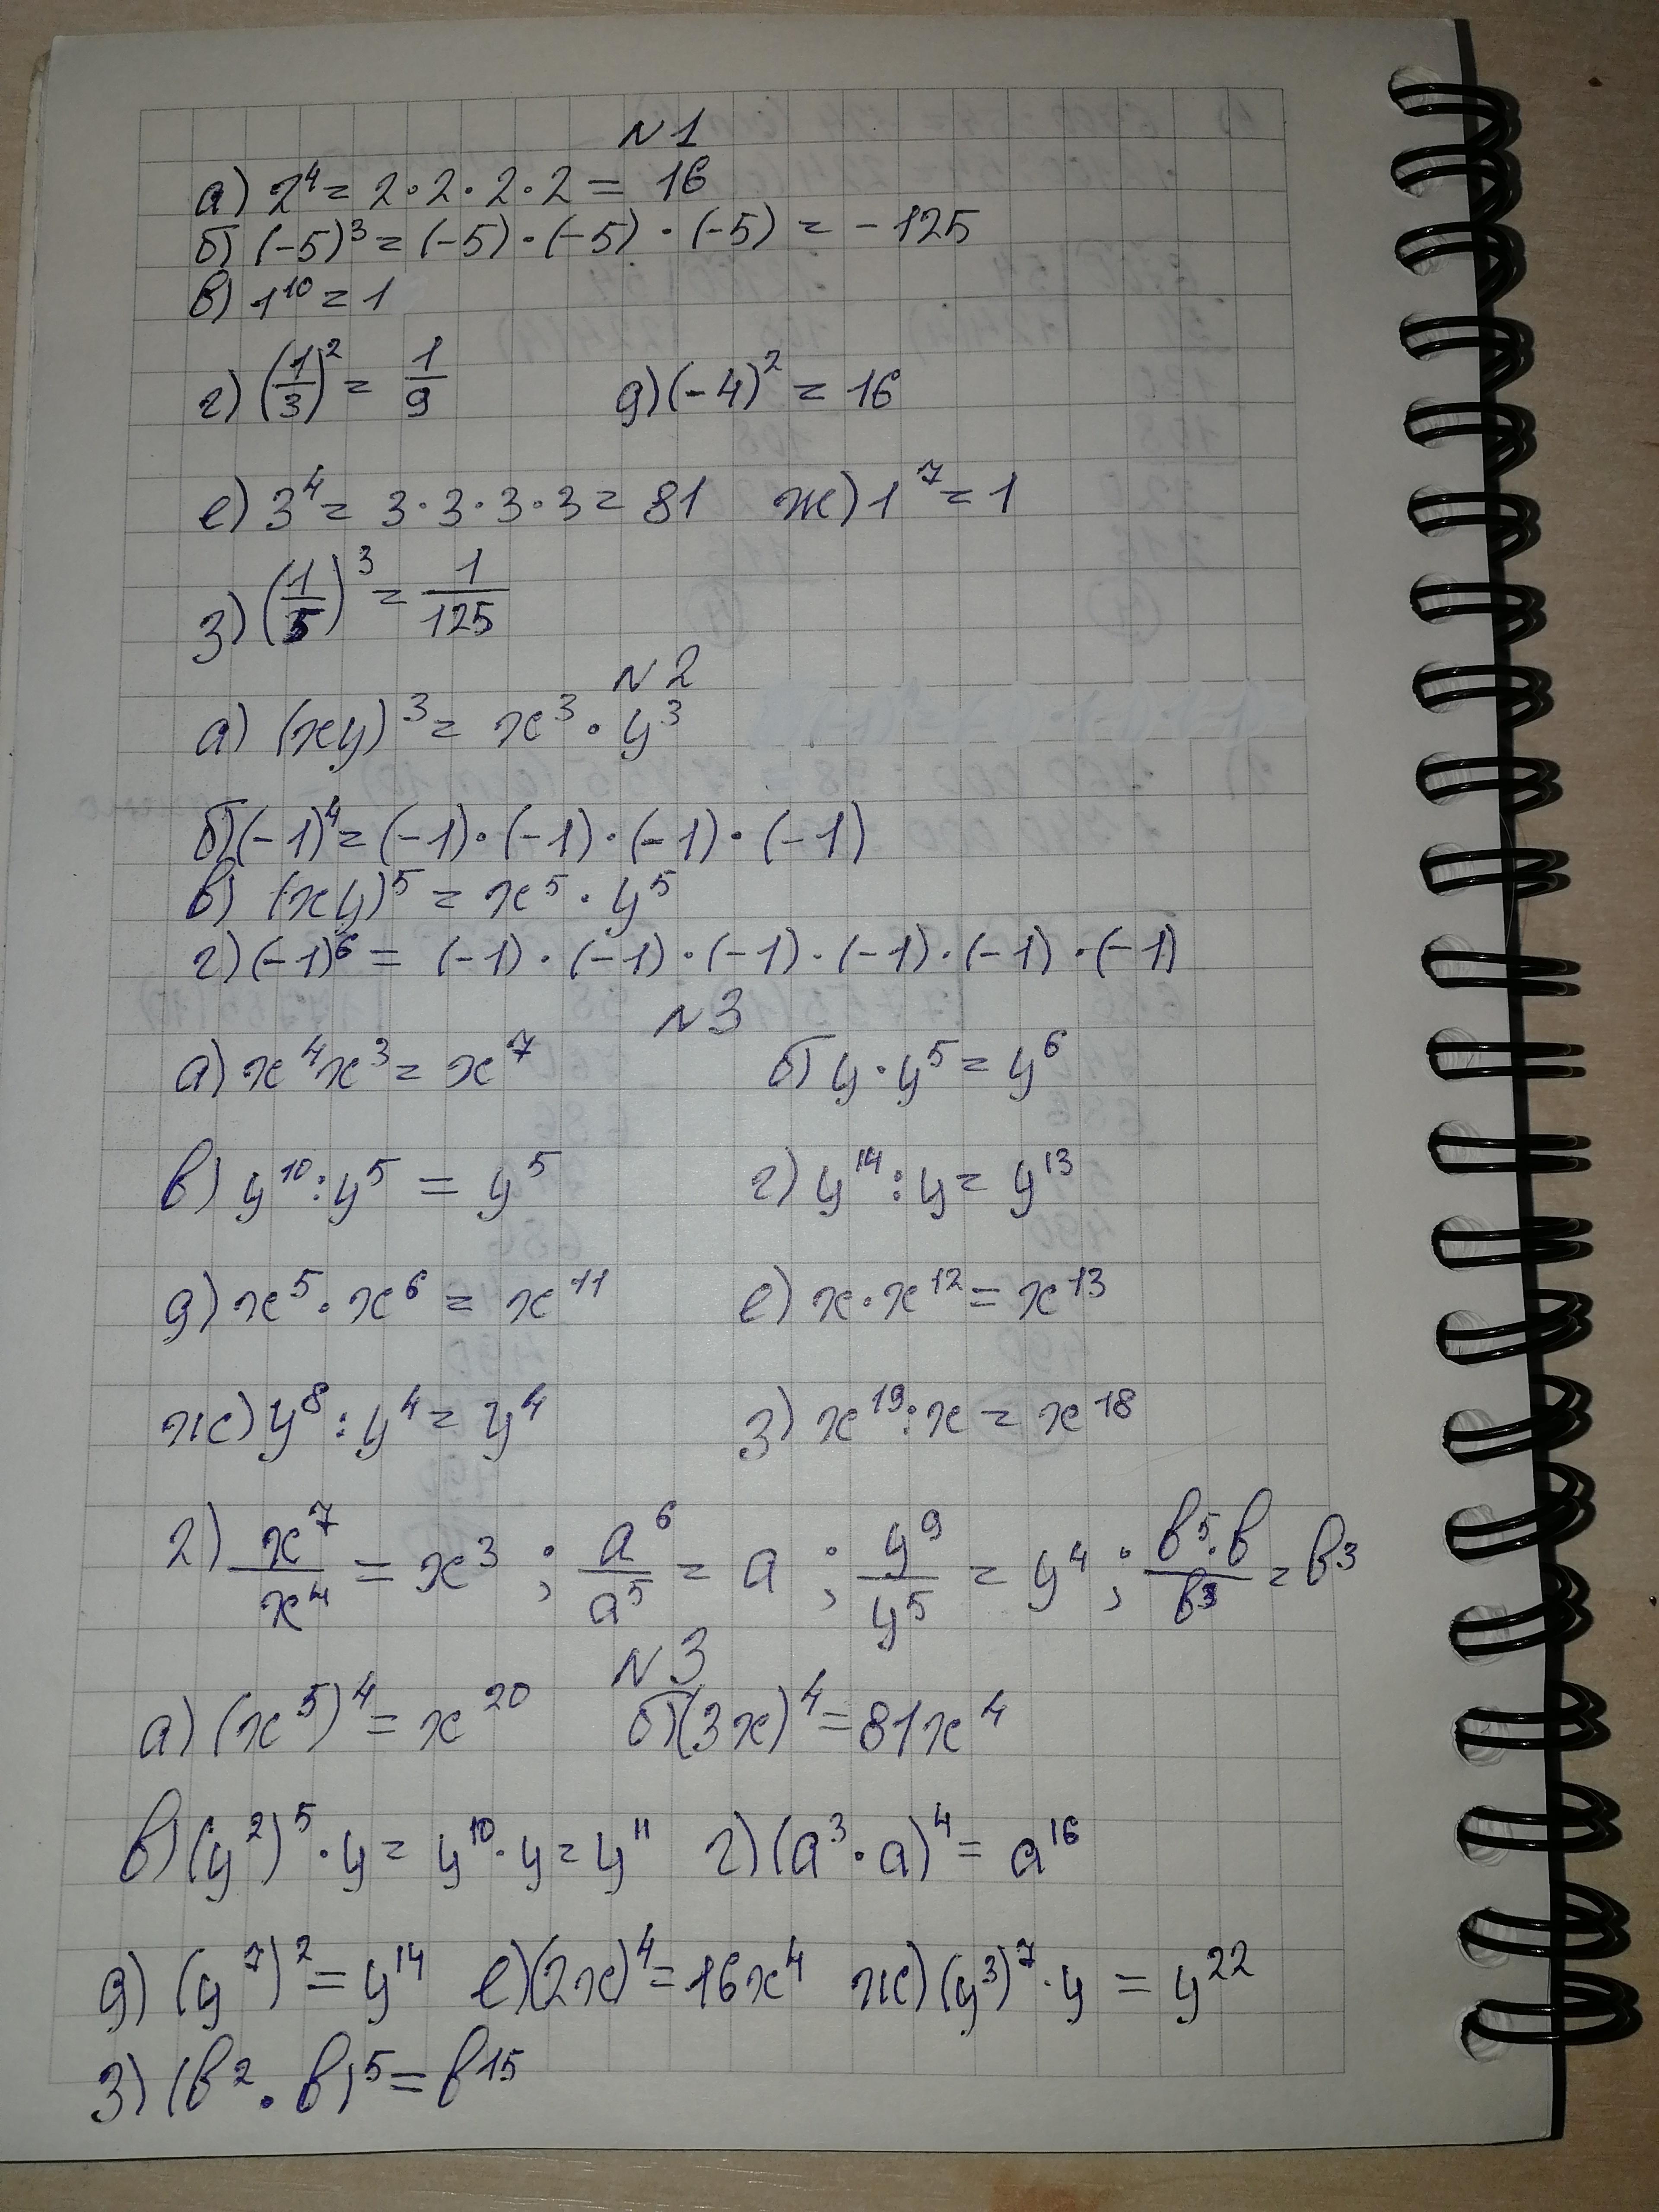 №1
а) 2⁴ = 2·2·2·2 = 16
б) (-5)³ = (-5)·(-5)·(-5) = -125
в) 1¹⁰ = 1
г) (1/3)² = 1/9 д) (-4)² = 16
е) 3⁴ = 3·3·3·3 = 81 ж) 1⁷ = 1
з) (1/5)³ = 1/125
№2
а) (xy)³ = x³·y³
б) (-1)⁴ = (-1)·(-1)·(-1)·(-1)
в) (xy)⁵ = x⁵·y⁵
г) (-1)⁶ = (-1)·(-1)·(-1)·(-1)·(-1)·(-1)
№3
а) x⁴x³ = x⁷ б) y·y⁵ = y⁶
в) y¹⁰:y⁵ = y⁵ г) y¹⁴:y = y¹³
д) x⁵·x⁶ = x¹¹ е) x·x¹² = x¹³
ж) y⁸:y⁴ = y⁴ з) x¹⁹:x = x¹⁸
2) x⁷/x⁴ = x³ ; a⁶/a⁵ = a ; y⁹/y⁵ = y⁴ ; в⁵·в/в³ = в³
№3
а) (x⁵)⁴ = x²⁰ б) (3x)⁴ = 81x⁴
в) (y²)⁵·y = y¹⁰·y = y¹¹ г) (a³·a)⁴ = a¹⁶
д) (y⁷)² = y¹⁴ е) (2x)⁴ = 16x⁴ ж) (y³)⁷·y = y²²
з) (в²·в)⁵ = в¹⁵